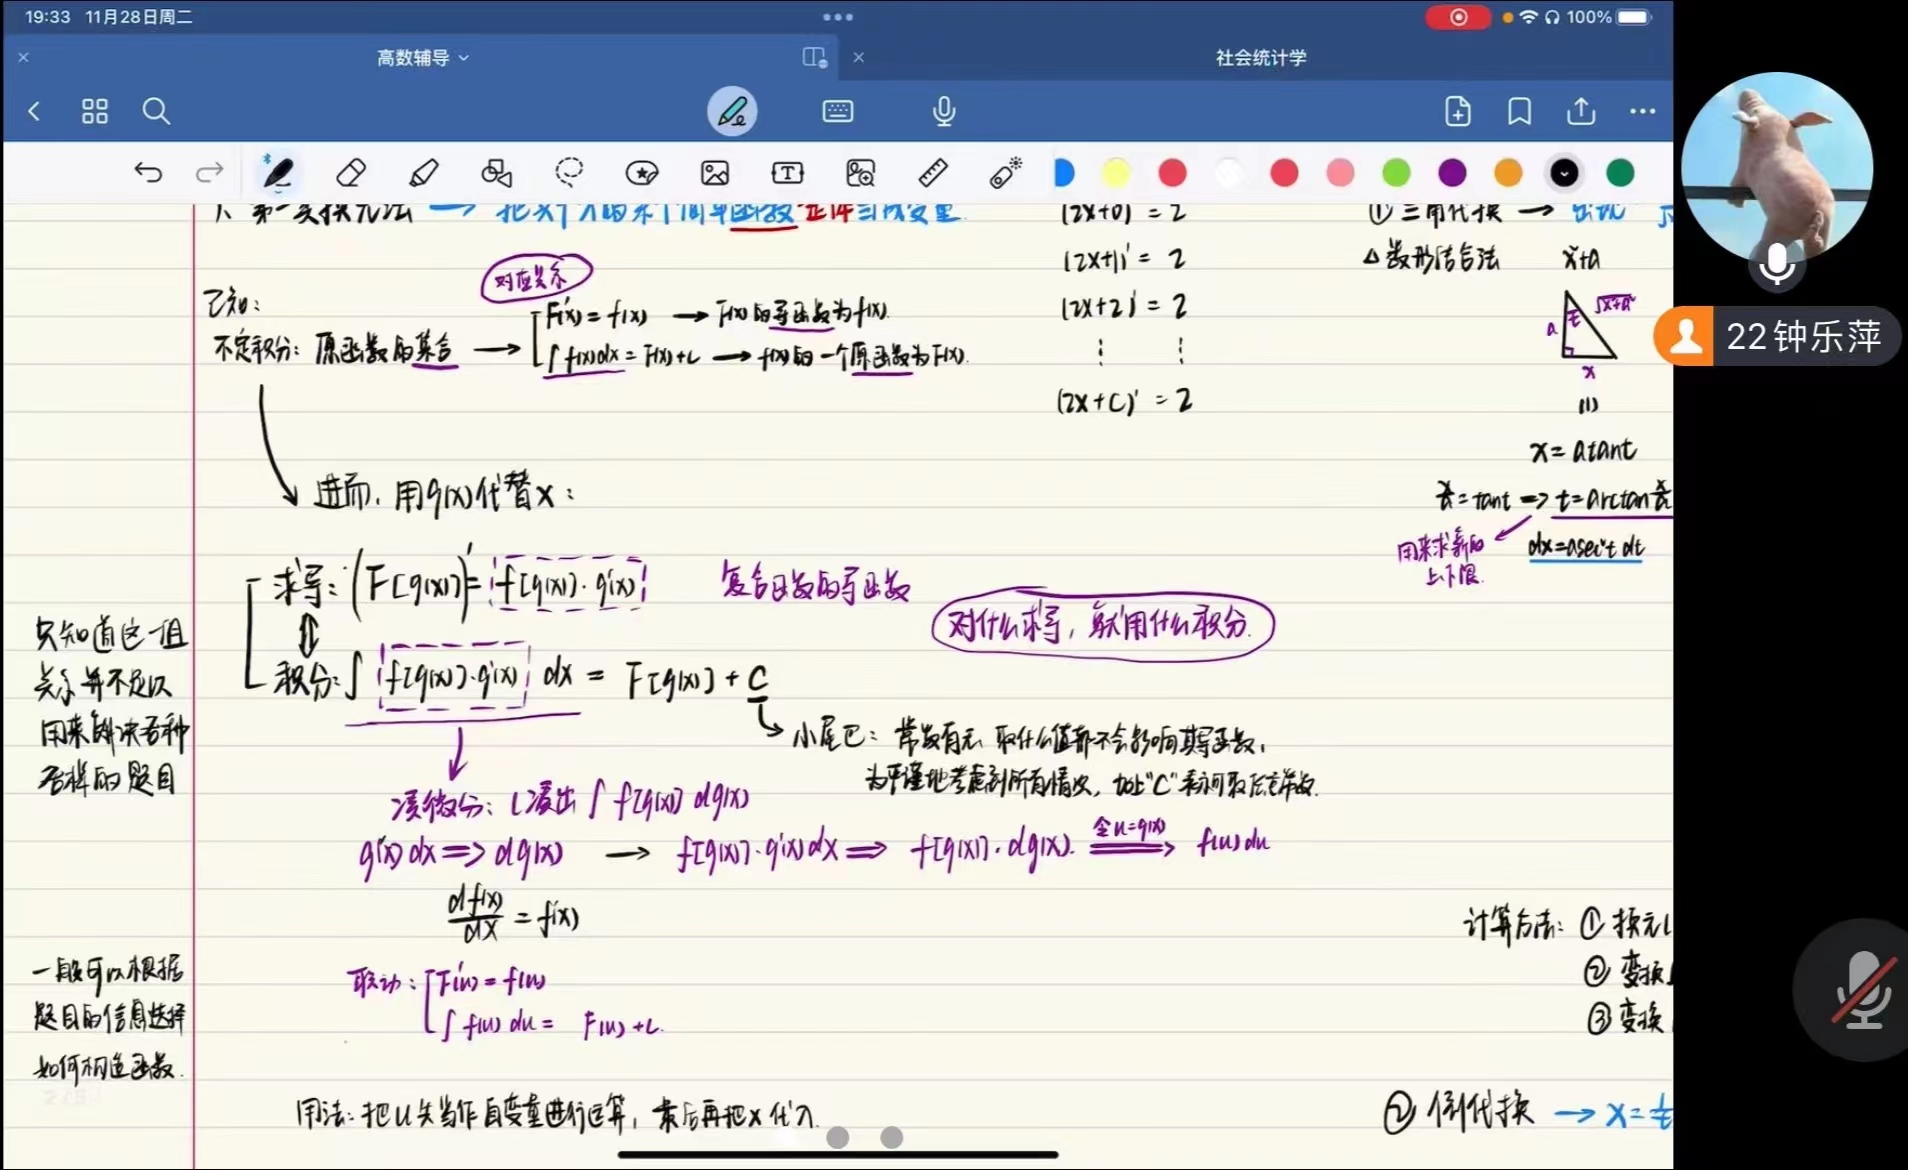 19:33 11月28日周二
100%
高数辅导
社会统计学
22钟乐萍
1、第一类换元法 → 把关于x的某个简单函数整体当成变量
对应关系
已知：
不定积分：原函数的集合 →
F'(x) = f(x) → F(x)的导函数为f(x).
∫f(x)dx = F(x)+C → f(x)的一个原函数为F(x).
进而，用g(x)代替x：
求导：(F[g(x)])' = f[g(x)]·g'(x)
复合函数的导函数
积分：∫ f[g(x)]·g'(x) dx = F[g(x)] + C
对什么求导，就用什么积分.
小尾巴：常数有无 取什么值都不会影响其导函数，
为严谨地考虑到所有情况，加上"C"表示可取任意常数.
凑微分：凑出 ∫ f[g(x)] dg(x)
g'(x) dx ⇒ dg(x) → f[g(x)]·g'(x)dx ⇒ f[g(x)]·dg(x). 令u=g(x) f(u)du
df(x)/dx = f'(x)
联动：
F'(u) = f(u)
∫ f(u) du = F(u)+C.
用法：把u先当作自变量进行运算，最后再把x代入.
只知道这一组
关系并不足以
用来解决各种
各样的题目
一般可以根据
题目的信息选择
如何构造函数.
(2x+0)' = 2
(2x+1)' = 2
(2x+2)' = 2
⋮ ⋮
(2x+C)' = 2
① 三角代换 → 出现
△ 数形结合法 x²+a²
√x²+a²
a
t
x
(1)
x = atant
x/a = tant ⇒ t = arctan x/a
用来求新的
上下限.
dx = asec²t dt
计算方法：① 换元
② 变换
③ 变换
② 倒代换 → x = 1/t